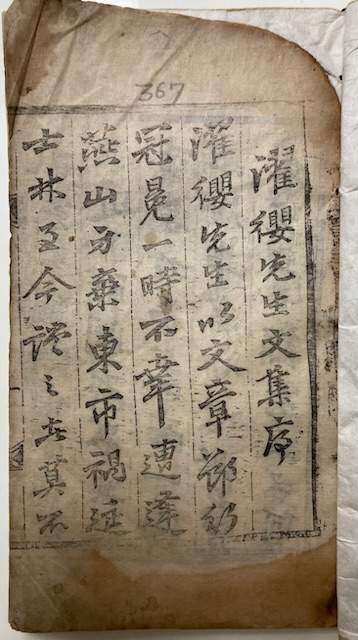 367
濯纓先生文集序
濯纓先生以文章節行
冠冕一時不幸遭逢
燕山身棄東市禍延
士林至今談之者莫不